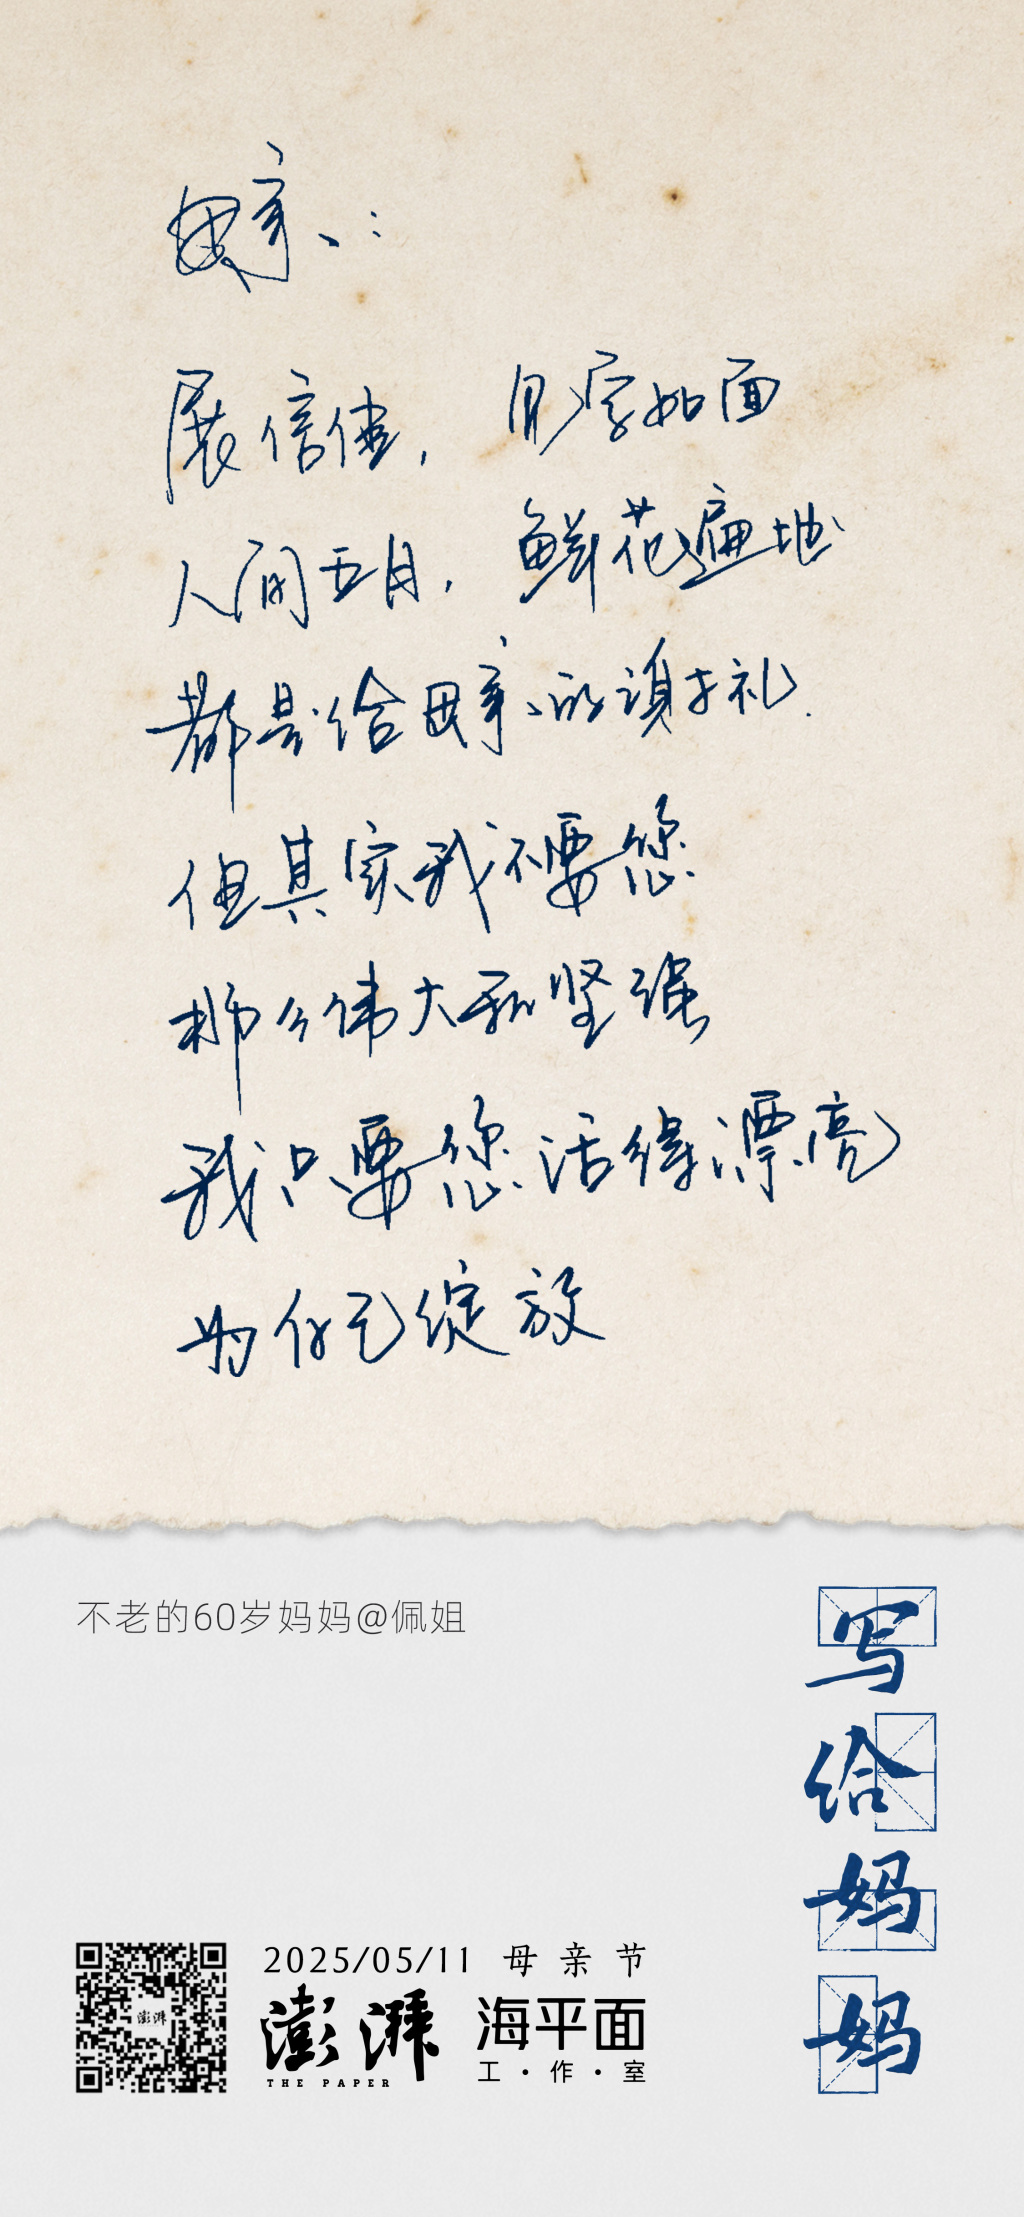 母亲：
展信佳，见字如面
人间五月，鲜花遍地
都是给母亲的谢礼.
但其实我不要您
那么伟大和坚强
我只要您活得漂亮
为自己绽放
不老的60岁妈妈@佩姐
写给妈妈
2025/05/11 母亲节
澎湃 海平面
THE PAPER 工·作·室
澎湃